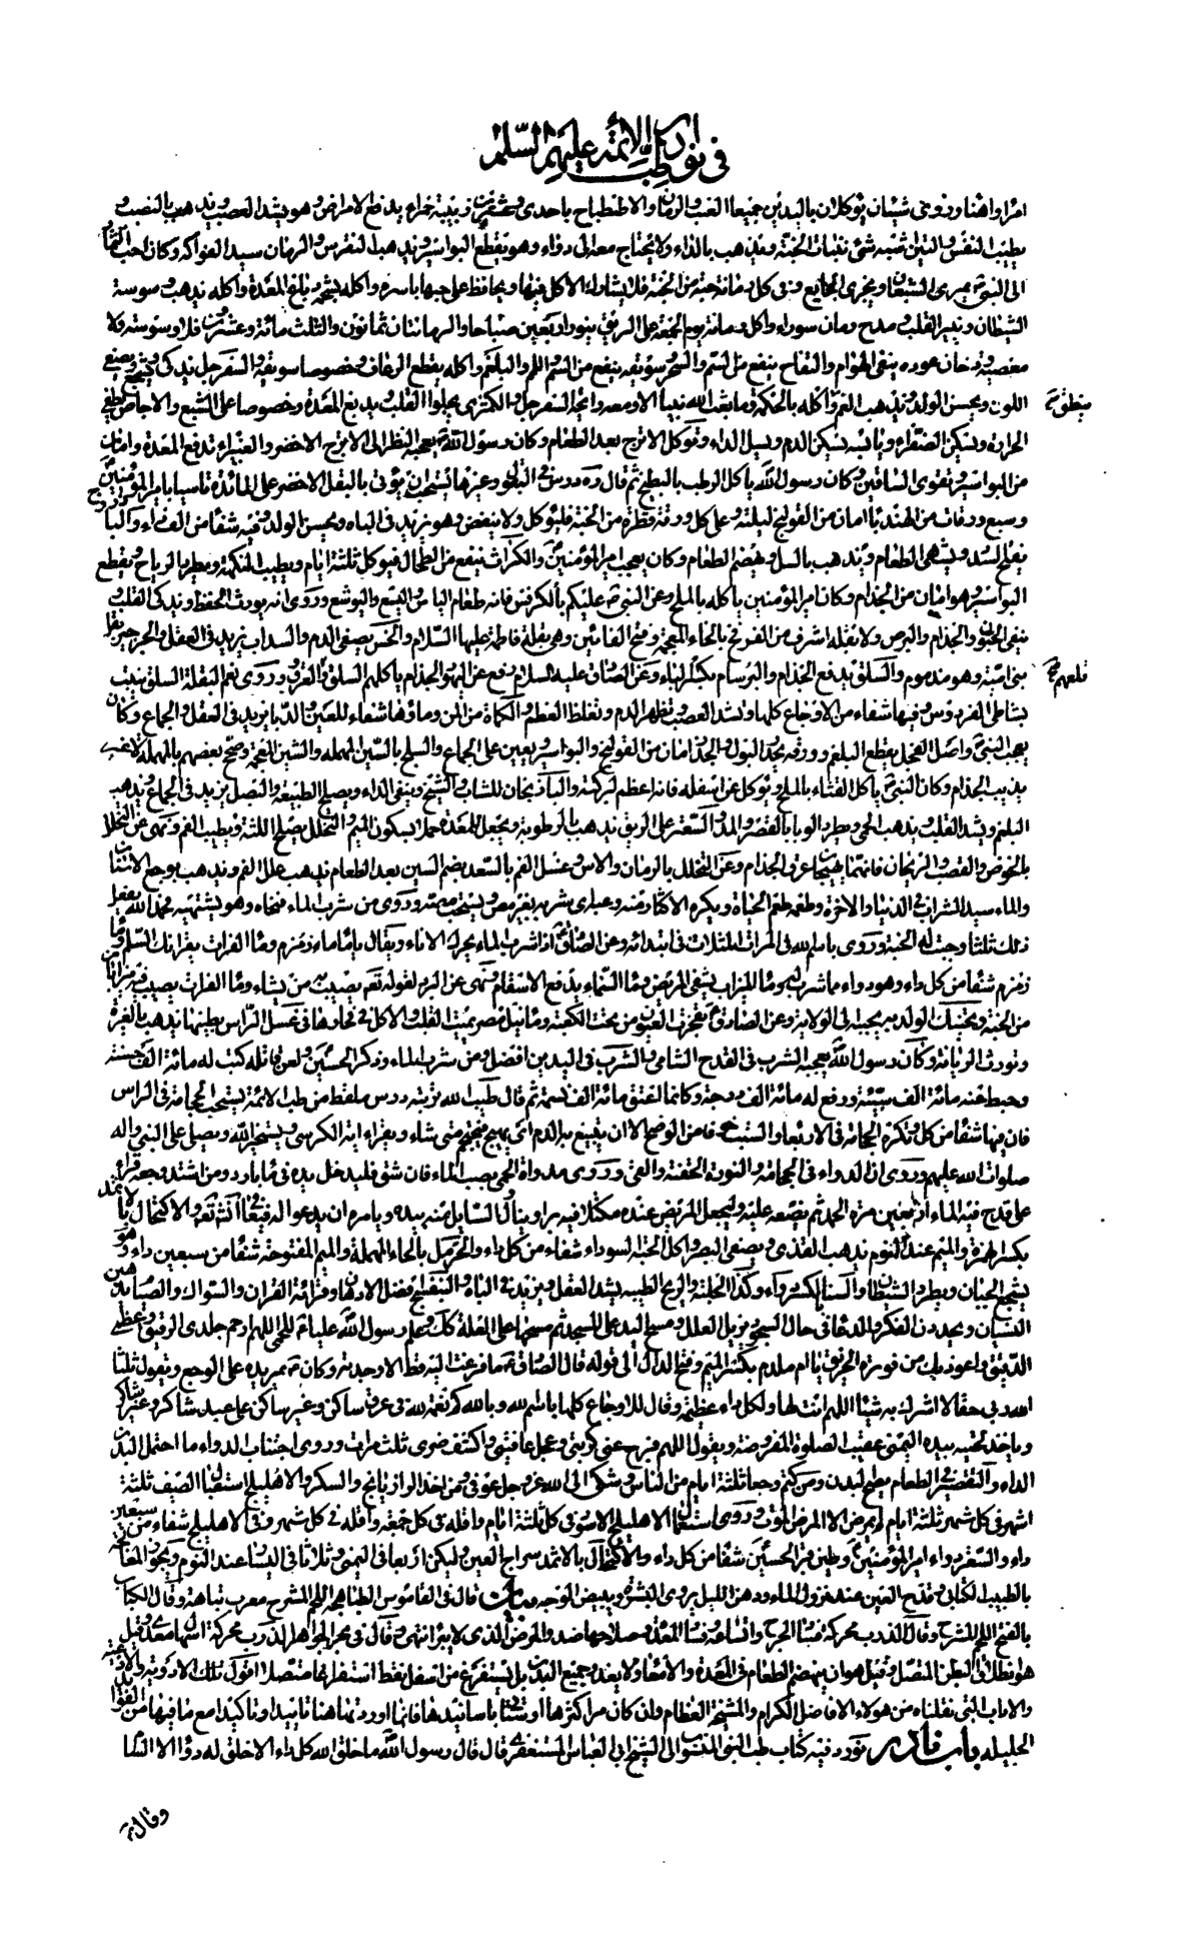 في نوادر طب الأئمة عليهم السلام
امرأ واهنأ وروى شيئان يؤكلان باليدين جميعا العنب والرمان والاصطباح باحدى وعشرين زبيبة حمراء يدفع الامراض وهو يشد العصب ويذهب بالنصب و
يطيب النفس والتين اشبه شئ بنبات الجنة ويذهب بالداء ولا يحتاج معه الى دواء وهو يقطع البواسير ويذهب النقرس والرمان سيد الفواكه وكان احب الثمار
الى النبي ص يمرئ الشبعان ويجزي الجايع وفي كل رمانة حبة من الجنة فلا يشارك الاكل فيها ويحافظ على حبها باسره واكله بشحمه دباغ المعدة واكله يذهب وسوسة
الشيطان وينير القلب ومدح رمان سوراء واكل رمانة يوم الجمعة على الريق ينور اربعين صباحا والرمانتان ثمانون والثلث مائة وعشرون فلا وسوسة ولا
معصية ودخان عوده ينفي الهوام والتفاح ينفع من السم والسحر وسويقه ينفع من السم واللمم والبلغم واكله يقطع الرعاف وخصوصا سويقه والسفرجل يذكي ويشجع ويصفي
اللون ويحسن الولد ويذهب الغم واكله بالحكمة وما بعث الله نبيا الا ومعه رائحة السفرجل والكمثرى يجلو القلب ويدبغ المعدة وخصوصا على الشبع والاجاص يطفي
الحرارة ويسكن الصفراء ويابسه يسكن الدم ويسل الداء ويؤكل الاترج بعد الطعام وكان رسول الله ص يعجبه النظر الى الاترج الاخضر والغبيراء تدبغ المعدة وامان
من البواسير وتقوى الساقين وكان رسول الله يأكل الرطب بالبطيخ ثم قال ره درس في البقول وغيرها يستحب ان يؤتى بالبقل الاخضر على المائدة تأسيا بامير المؤمنين
وسبع ورقات من الهندباء امان من القولنج ليلته وعلى كل ورقة قطرة من الجنة فليؤكل ولا ينفض وهو يزيد في الباه ويحسن الولد وفيه شفا من الف داء والباذروج
يفتح السدد ويشهي الطعام ويذهب بالسل ويهضم الطعام وكان يعجب امير المؤمنين والكراث ينفع من الطحال فيؤكل ثلثة ايام ويطيب النكهة ويطرد الرياح ويقطع
البواسير وهو امان من الجذام وكان امير المؤمنين يأكله بالملح وعن النبي ص عليكم بالكرفس فانه طعام الياس واليسع واليوشع وروى انه يورث الحفظ ويذكي القلب و
ينفي الجنون والجذام والبرص ولا بقلة اشرف من الفرفخ بالخاء المعجمة وفتح الفائين وهي بقلة فاطمة عليها السلام والخس يصفي الدم والسداب يزيد في العقل والجرجير بقل
بني امية وهو مذموم والسلق يدفع الجذام والبرسام بكسر الباء وعن الصادق عليه السلم رفع عن اليهود الجذام باكلهم السلق والعروق وروى نعم البقلة السلق ينبت
بشاطئ الفردوس وفيها شفاء من الاوجاع كلها وتشد العصب وتظهر الدم وتغلظ العظم والكماة من المن وماؤها شفاء للعين والدبا يزيد في العقل والجماع وكان
يعجب النبي ص واصل الفجل يقطع البلغم وورقه يحدر البول والجزر امان من القولنج والبواسير ويعين على الجماع والسلجم بالسين المهملة والشين المعجمة وصحح بعضهم بالمهملة لا غير
يذيب الجذام وكان النبي ص يأكل القثاء بالملح ويؤكل من اسفله فانه اعظم لبركته والباذنجان للشاب والشيخ وينفي الداء ويصلح الطبيعة والبصل يزيد في الجماع ويذهب
البلغم ويشد القلب ويذهب الحمى ويطرد الوبا بالقصر والمد والسعتر على الريق يذهب بالرطوبة ويجعل للمعدة خملا بسكون الميم والتخلل يصلح اللثة ويطيب الفم ونهى عن التخلل
بالخوص والقصب والريحان فانهما يهيجان عرق الجذام وعن التخلل بالرمان والاس وغسل الفم بالسعد بضم السين بعد الطعام يذهب علل الفم ويذهب بوجع الاسنان
والماء سيد الشراب في الدنيا والاخرة وطعمه طعم الحياة ويكره الاكثار منه وعبه اى شربه بغير مص ويستحب مصه وروى من شرب الماء فنحاه وهو يشتهيه فحمد الله يفعل
ذلك ثلثا وجبت له الجنة وروى باسم الله في المرات الثلاث في ابتدائه وعن الصادق اذا شرب الماء يحرك الاناء ويقال يا ماء ماء زمزم وماء الفرات يقرانك السلم وماء
زمزم شفا من كل داء وهو دواء ما شرب له وماء الميزاب يشفي المريض وماء السماء يدفع الاسقام ونهى عن البرد لقوله تعالى يصيب به من يشاء وماء الفرات يصب فيه ميزابان
من الجنة وتحنيك الولد به يحببه في الولاية وعن الصادق ع تفجرت العيون من تحت الكعبة وماء نيل مصر يميت القلب والاكل في فخارها وغسل الرأس بطينها يذهب بالغيرة
وتورث الدياثة وكان رسول الله ص يعجبه الشرب في القدح الشامي والشرب في اليدين افضل ومن شرب الماء وذكر الحسين ولعن قاتله كتب له مائة الف حسنة
وحط عنه مائة الف سيئة ورفع له مائة الف درجة وكانما اعتق مائة الف نسمة ثم قال طيب الله تربته درس ملتقط من طب الائمة يستحب الحجامة في الراس
فان فيها شفا من كل داء وتكره الحجامة في الاربعاء والسبت خوفا من الوضح الا ان يتبيغ به الدم اى يهيج فيحتجم متى شاء ويقراء اية الكرسي ويستخير الله ويصلي على النبي واله
صلوات الله عليهم وروى ان الدواء في الحجامة والنورة والحقنة والقي وروى مداواة الحمى بصب الماء فان شق فليدخل يده في ماء بارد ومن اشتد وجعه قرا
على قدح فيه الماء اربعين مرة الحمد ثم يضعه عليه وليجعل المريض عنده مكتلا فيه بر ويناول السايل منه بيده ويامره ان يدعو له فيعافا انشاء الله تعالى والاكتحال بالاثمد
بكسر الهمزة والميم عند النوم يذهب القذى ويصفي البصر واكل الحبة السوداء شفاء من كل داء والحرمل بالحاء المهملة والميم المفتوحة شفا من سبعين داء وهو
يشجع الجبان ويطرد الشيطان والسنا دواء وكذا الحلبة والريح الطيبة يشد العقل ويزيد في الباه والبنفسج افضل الادهان وقرائة القران والسواك والصيام يذهبن
النسيان ويحددن الفكر والدعاء في حال السجود يزيل العلل ومسح اليد على المسجد ثم مسحها على العلة كذلك وعلم رسول الله عليا ع للحمى اللهم ارحم جلدي الرقيق وعظمي
الدقيق واعوذ بك من فورة الحريق يا ام ملدم بكسر الميم وفتح الدال الى قوله قال الصادق ع ما فزعت اليه قط الا وجدته وكان ع يمر يده على الوجع ويقول ثلثا
الله ربي حقا لا اشرك به شيئا اللهم انت لها ولكل داء عظيمة وقال للاوجاع كلها باسم الله وبالله كم نعمة لله في عرق ساكن وغير ساكن على عبد شاكر وغير شاكر
وياخذ لحيته بيده اليمنى عقيب الصلوة المفروضة ويقول اللهم فرج عني كربتي وعجل عافيتي واكشف ضري ثلث مرات وروى اجتناب الدواء ما احتمل البدن
الداء والتقصير في الطعام يصح البدن ومن كتم وجعا ثلثة ايام من الناس وشكى الى الله عز وجل عوفي ومن اخذ الرازيانج والسكر والاهليلج استقبال الصيف ثلثة
اشهر في كل شهر ثلثة ايام لم يمرض الا المرض الموت وروى استعمال الاهليلج الاسود في كل ثلثة ايام واقله في كل جمعة واقله في كل شهر وفي الاهليلج شفاء من سبعين
داء والسعتر دواء امير المؤمنين ع وطين قبر الحسين شفا من كل داء والاكتحال بالاثمد سراج العين وليكن اربعا في اليمنى وثلاثا في اليسار عند النوم ويجوز المعالجة
بالطبيب الكتابي وقدح العين عند نزول الماء ودهن الليل يروى البشرة ويبيض الوجه قال في القاموس الطباهجة اللحم المشرح معرب تباهه وقال الكباب
بالفتح اللحم المشرح وقال الذرب محركة فساد الجرح واتساعه وفساد المعدة وصلاحها ضد والمرض الذي لا يبرأ انتهى وقال في بحر الجواهر الذرب محركة اسهال معدي وقيل
هو انطلاق البطن المتصل وقيل هو ان ينهضم الطعام في المعدة والامعاء ولا يغذو جميع البدن بل يستفرغ من اسفل فقط استفراغا متصلا اقول تلك الادوية والادعية
والاداب التي نقلناه من هؤلاء الافاضل الكرام والمشيخة العظام وان كان مر اكثرها اوسيأتي باسانيدها فانما اوردتها هنا تاييدا وتاكيدا مع ما فيها من الفوائد
الجليلة باب نادر نورد فيه كتاب طب النبي المنسوب الى الشيخ ابي العباس المستغفري قال قال رسول الله ما خلق الله كل داء الا خلق له دواء الا السام
وقال ص